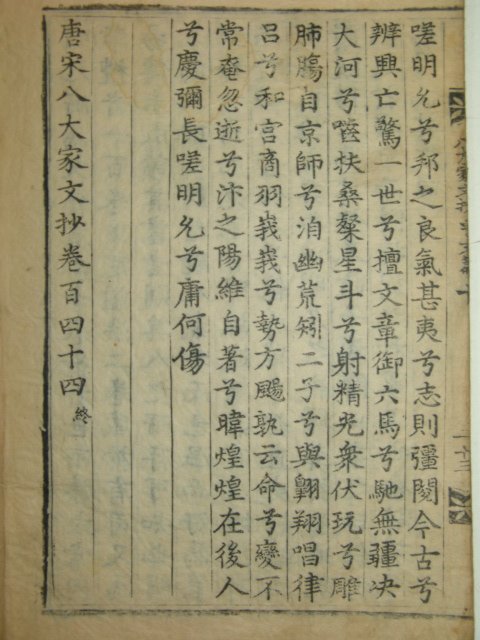 嗟明允兮邦之良氣甚夷兮志則彊閱今古兮
辨興亡驚一世兮擅文章御六馬兮馳無疆决
大河兮噬扶桑粲星斗兮射精光衆伏玩兮雕
肺膓自京師兮洎幽荒矧二子兮與翶翔唱律
呂兮和宮商羽峩峩兮勢方颺孰云命兮變不
常奄忽逝兮汴之陽維自著兮暐煌煌在後人
兮慶彌長嗟明允兮庸何傷
唐宋八大家文抄卷百四十四終